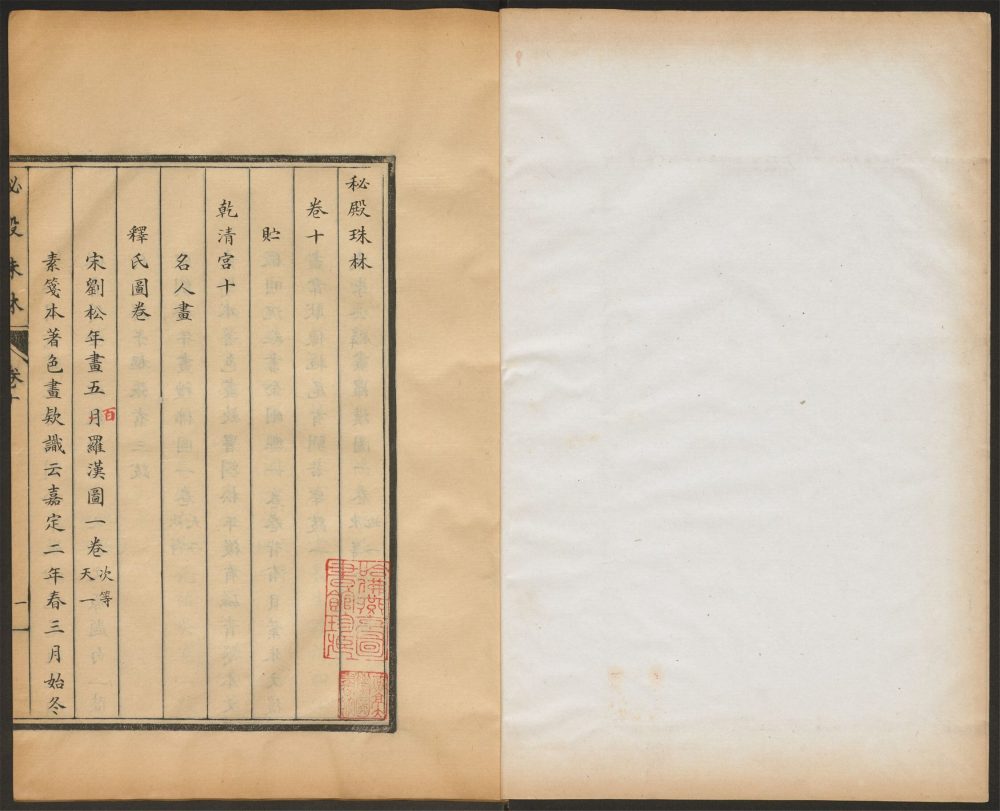 秘殿珠林
卷十
貯
乾清宮十
名人畫
釋氏圖卷
宋劉松年畫五月羅漢圖一卷次等天一
百
素箋本著色畫欵識云嘉定二年春三月始冬
秘殿珠林
卷十
一